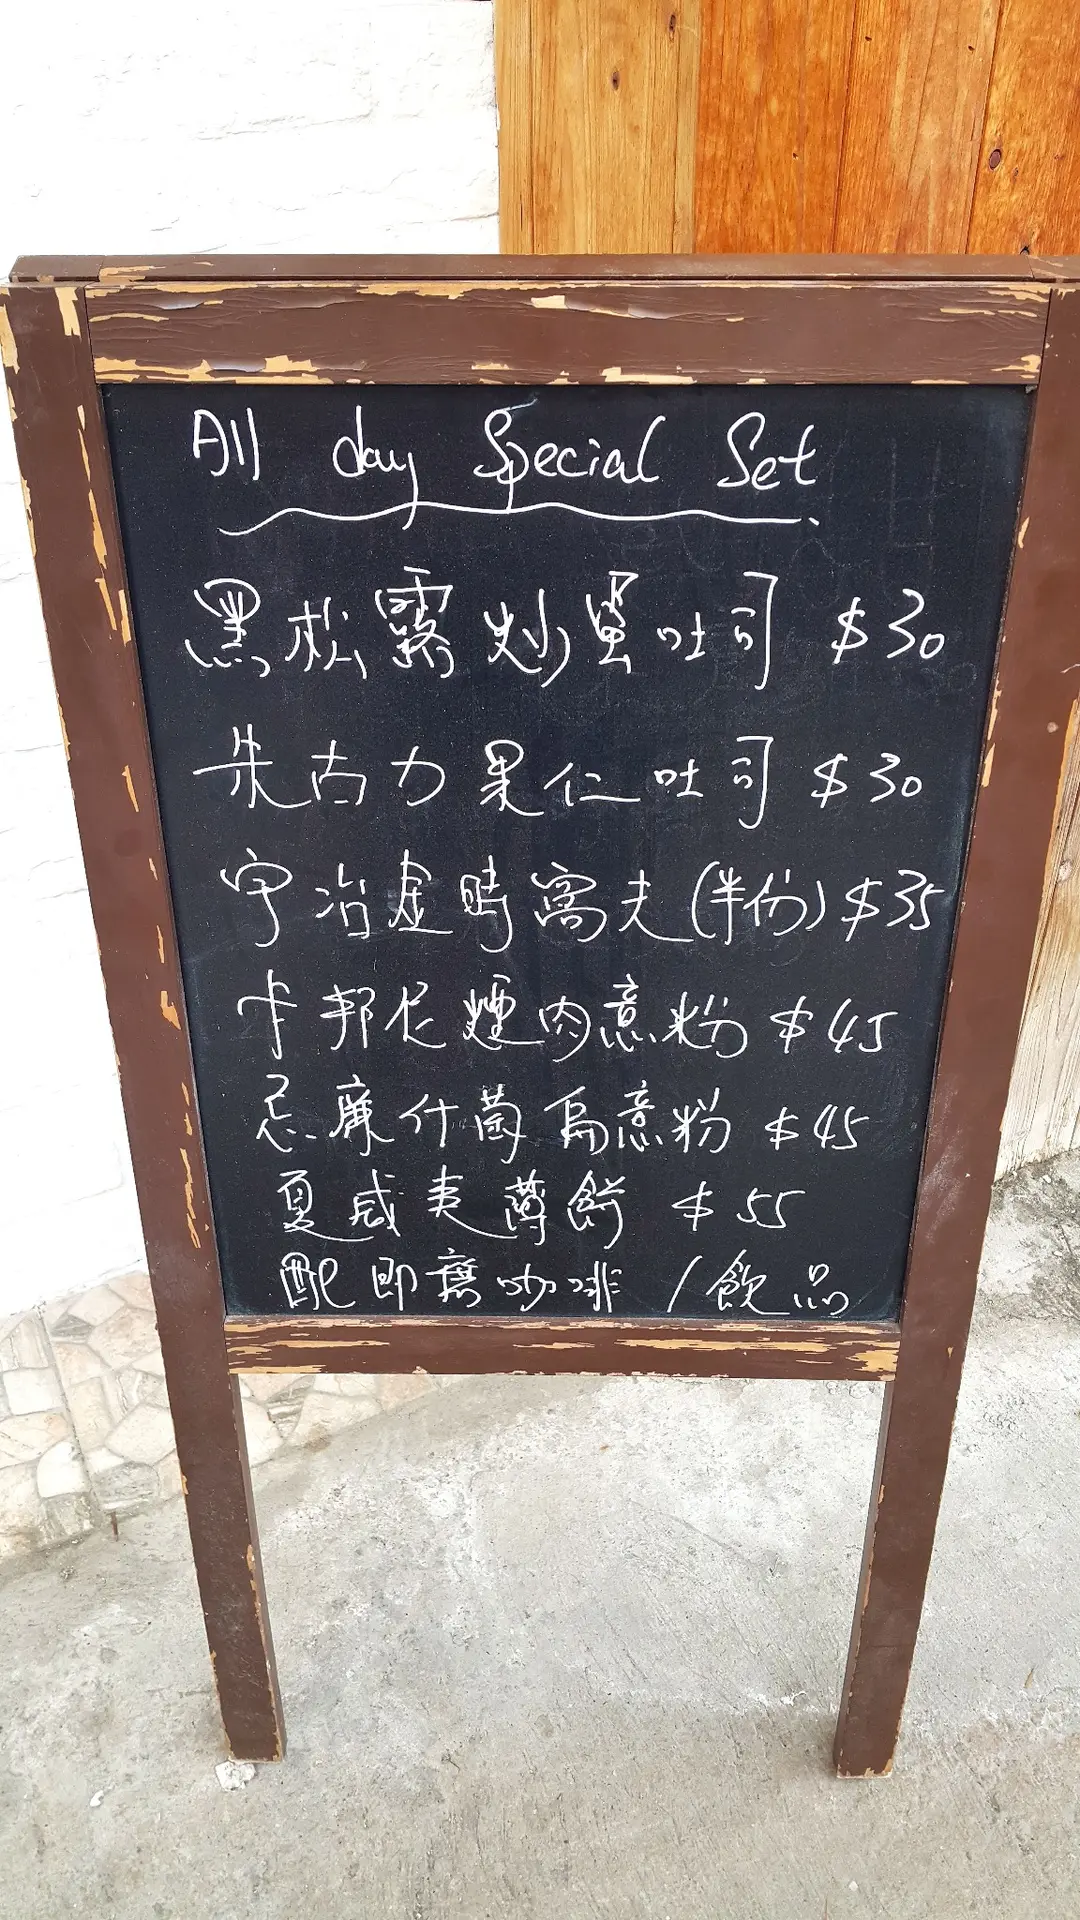 All day Special Set
黑松露炒蛋吐司 $30
朱古力果仁吐司 $30
宇治虛時窩夫(半份) $35
卡邦尼煙肉意粉 $45
忌廉什菌扁意粉 $45
夏威夷薄餅 $55
配即磨咖啡 / 飲品